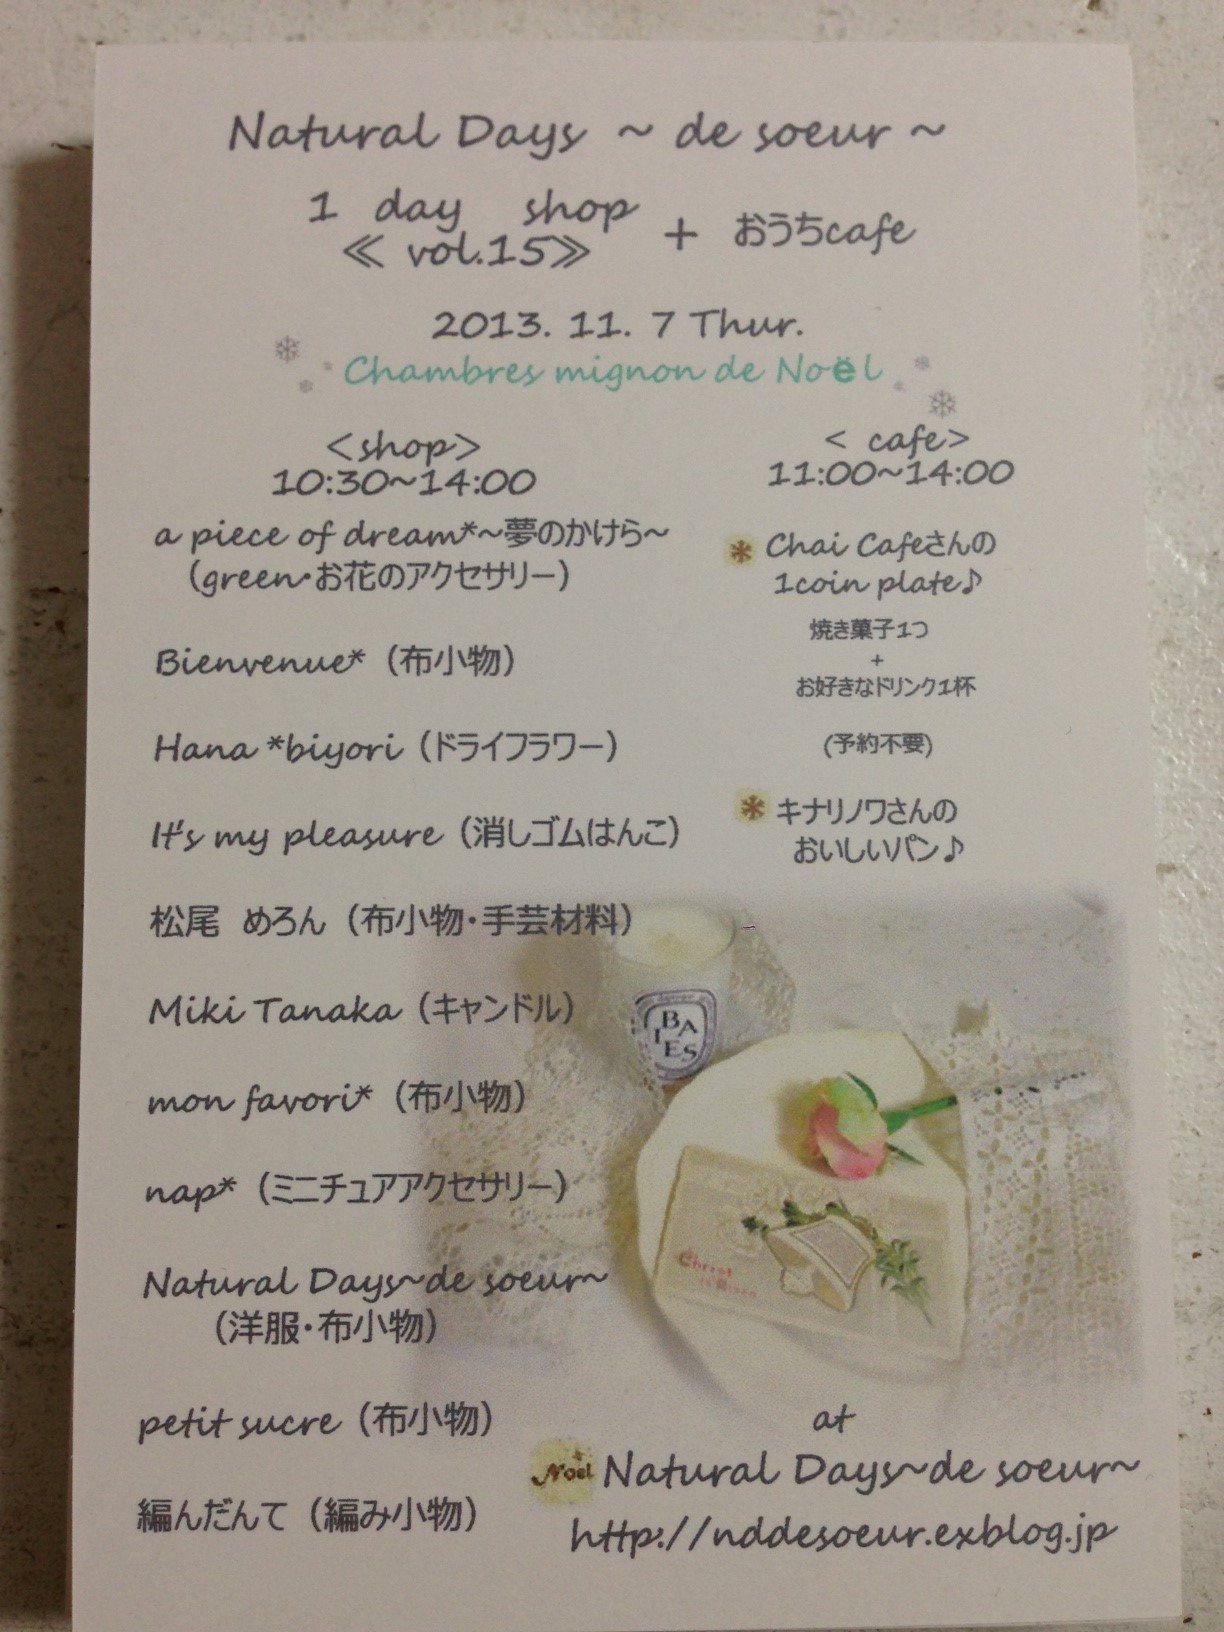 Natural Days ～ de soeur ～
1 day shop
≪ vol.15≫
+ おうちcafe
2013. 11. 7 Thur.
Chambres mignon de Noël
<shop>
10:30~14:00
a piece of dream*~夢のかけら~
(green・お花のアクセサリー)
Bienvenue* (布小物)
Hana *biyori (ドライフラワー)
It's my pleasure (消しゴムはんこ)
松尾 めろん (布小物・手芸材料)
Miki Tanaka (キャンドル)
mon favori* (布小物)
nap* (ミニチュアアクセサリー)
Natural Days~de soeur~
(洋服・布小物)
petit sucre (布小物)
編んだんて (編み小物)
< cafe>
11:00~14:00
Chai Cafeさんの
1coin plate♪
焼き菓子1つ
+
お好きなドリンク1杯
(予約不要)
キナリノワさんの
おいしいパン♪
BAIES
Christ
is Risen
at
Noel
Natural Days~de soeur~
http://nddesoeur.exblog.jp